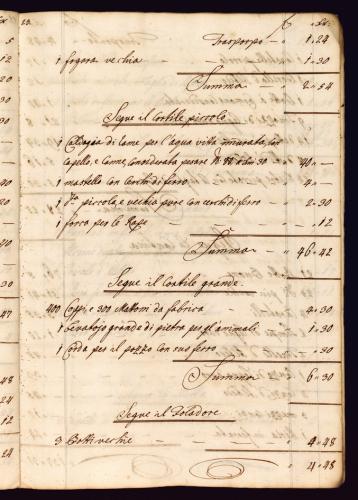 Trasporto - 1 = 24
1 fogera vechia - 1 = 30
Summa - 2 = 54
Segue il Cortile piccolo
1 Caldaja di rame per l'aqua vitta murata, con
capello, e canne, considerata pesare 40 = -
1 mastello con cerchi di ferro 4 = -
1 d.to piccolo, e vechio pure con cerchi di ferro - 2 = 30
1 forca per le Rape - - = 12
Summa - 46 = 42
Segue il Cortile grande
400 Coppi e 300 Mattoni da fabrica - 4 = 30
1 grande di pietra per gl'animali 1 = 30
1 Corda per il pozzo con suo ferro - = 30
Summa - 6 = 30
Segue il Foladore
3 Botti vechie - - 4 = 48
4 = 48